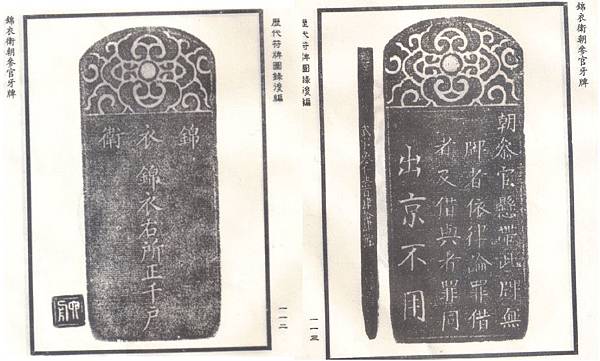 歷代符牌圖錄後編
一一二
錦衣衛
錦衣右所正千戶
錦衣衛朝參官牙牌
錦衣衛朝參官牙牌
朝參官懸帶此牌無
牌者依律論罪借
者及借與者罪同
出京不用
歷代符牌圖錄後編
一一三